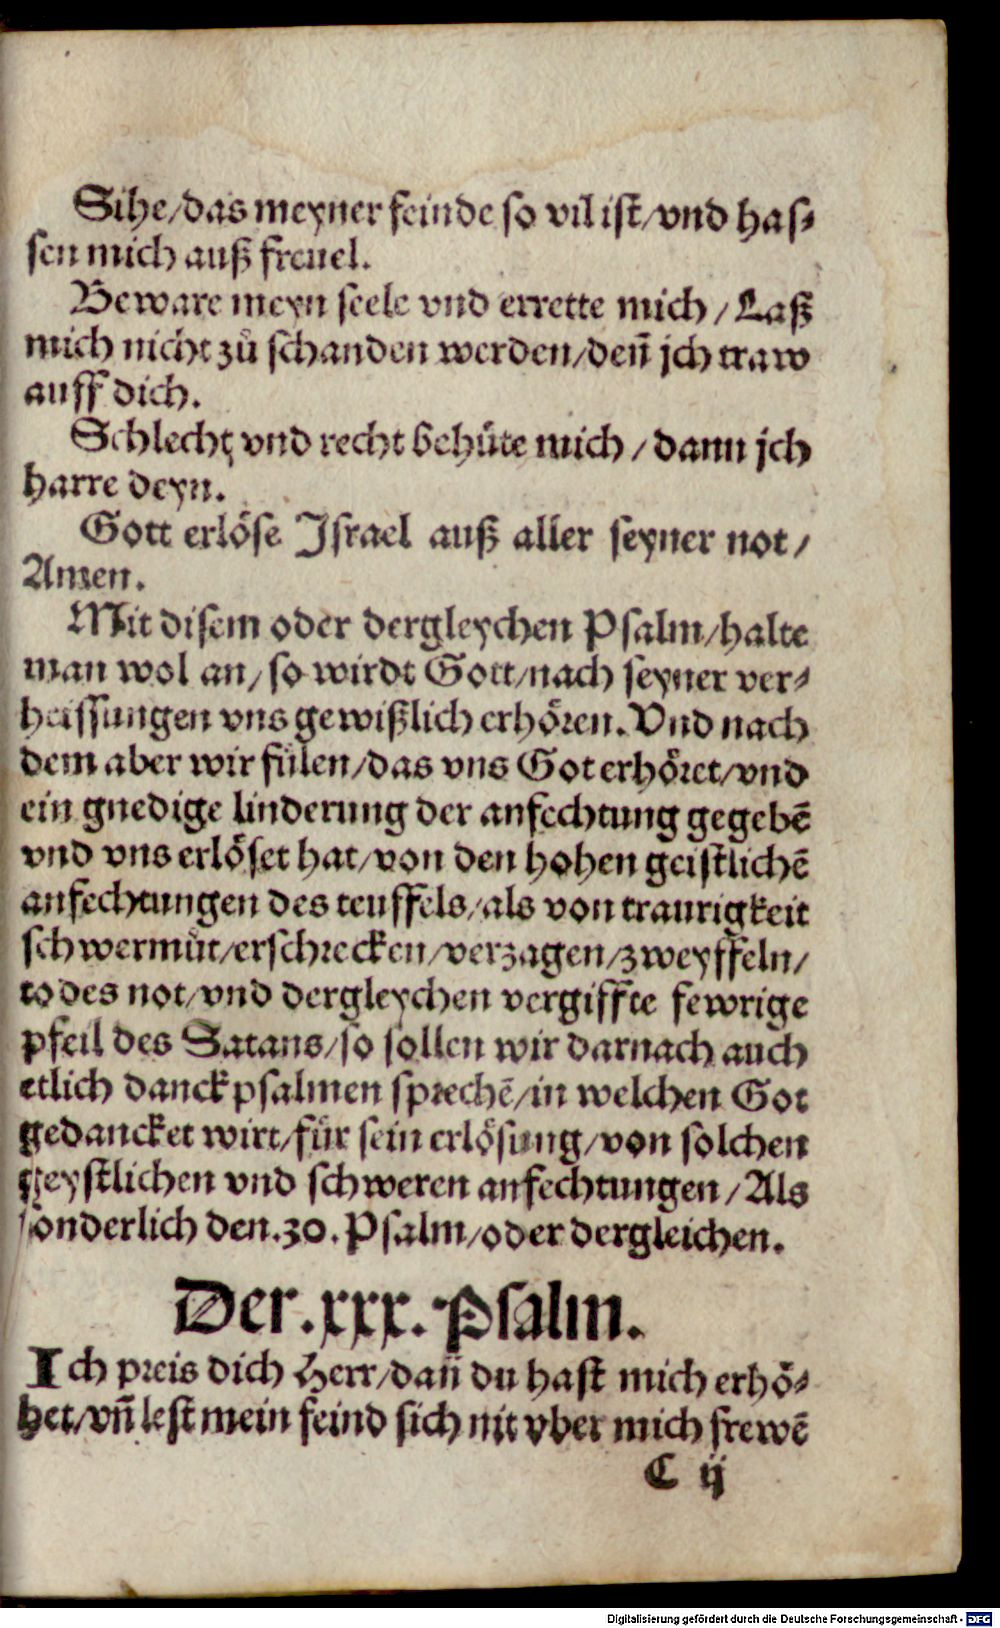 Sihe/das meyner feinde so vil ist/vnd has⸗
sen mich auß freuel.
Beware meyn seele vnd errette mich / Laß
mich nicht zů schanden werden/deñ jch traw
auff dich.
Schlecht vnd recht behůte mich / dann jch
harre deyn.
Gott erlöse Israel auß aller seyner not /
Amen.
Mit disem oder dergleychen Psalm/halte
man wol an/ so wirdt Gott/nach seyner ver⸗
heissungen vns gewißlich erhören. Vnd nach
dem aber wir fülen/das vns Got erhöret/vnd
ein gnedige linderung der anfechtung gegebē
vnd vns erlöset hat/von den hohen geistlichē
anfechtungen des teuffels/als von traurigkeit
schwermůt/erschrecken/verzagen/zweyffeln/
todes not/vnd dergleychen vergiffte fewrige
pfeil des Satans/so sollen wir darnach auch
etlich danckpsalmen sprechē/in welchen Got
gedancket wirt/für sein erlösung/von solchen
geystlichen vnd schweren anfechtungen / Als
sonderlich den.30.Psalm/oder dergleichen.
Der.xxx.Psalm.
Ich preis dich Herr/dañ du hast mich erhö⸗
het/vñ lest mein feind sich nit vber mich frewē
C ij
Digitalisierung gefördert durch die Deutsche Forschungsgemeinschaft - DFG